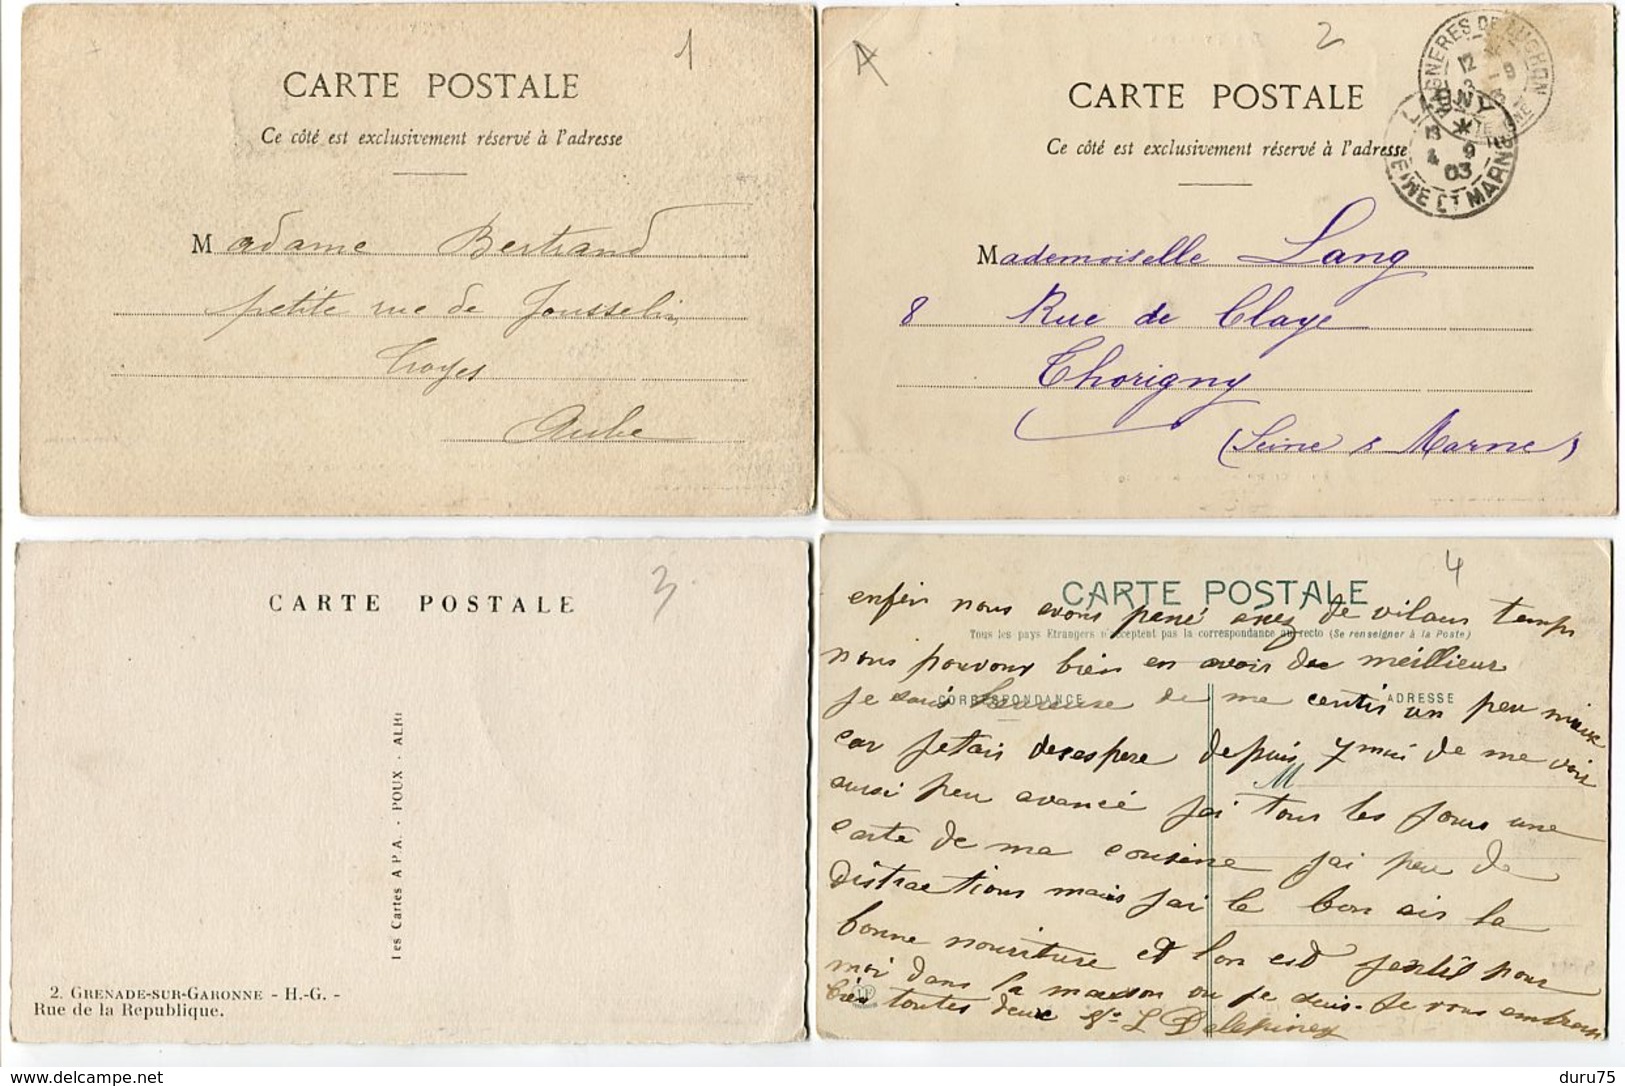 1
CARTE POSTALE
Ce côté est exclusivement réservé à l'adresse
Madame Bertrand
petite rue de Jousselin
Troyes
Aube
A
2
BAGNERES DE LUCHON
12
LAGNY
4 9
03
SEINE ET MARNE
CARTE POSTALE
Ce côté est exclusivement réservé à l'adresse
Mademoiselle Lang
8 Rue de Claye
Thorigny
(Seine & Marne)
3
CARTE POSTALE
Les Cartes A P.A. - POUX - ALBI
2. GRENADE-SUR-GARONNE - H.-G. -
Rue de la Republique.
4
CARTE POSTALE
Tous les pays Etrangers n'acceptent pas la correspondance au recto (Se renseigner à la Poste)
CORRESPONDANCE
ADRESSE
M
enfin nous avons pané asez de vilaus temps
nous pouvons bien en avoir du meillieur
je suis heureuse de me centir un peu mieux
car jetais desespere depuis 7 moi de me voir
aussi peu avancé jai tous les jours une
carte de ma cousine jai peu de
distractions mais jai le bon air la
bonne nouriture et lon est jentil pour
moi dans la maison ou je suis. Je vous embrasse
bien toutes deux L Delepiney
delcampe.net
duru75